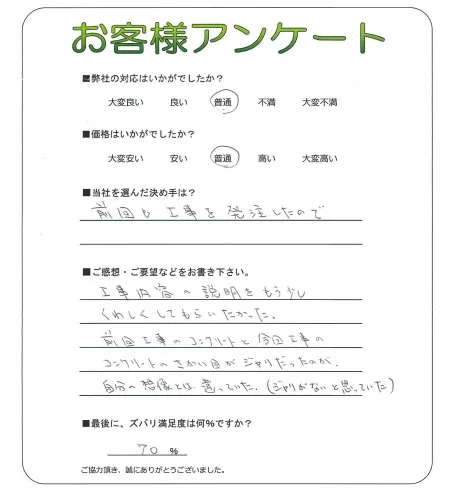 お客様アンケート
■弊社の対応はいかがでしたか？
大変良い 良い 普通 不満 大変不満
■価格はいかがでしたか？
大変安い 安い 普通 高い 大変高い
■当社を選んだ決め手は？
前回も工事を発注したので
■ご感想・ご要望などをお書き下さい。
工事内容の説明をもう少し
くわしくしてもらいたかった.
前回工事のコンクリートと今回工事の
コンクリートのさかい目がジャリだったのが.
自分の想像とは違っていた.(ジャリがないと思っていた)
■最後に、ズバリ満足度は何%ですか？
70 %
ご協力頂き、誠にありがとうございました。